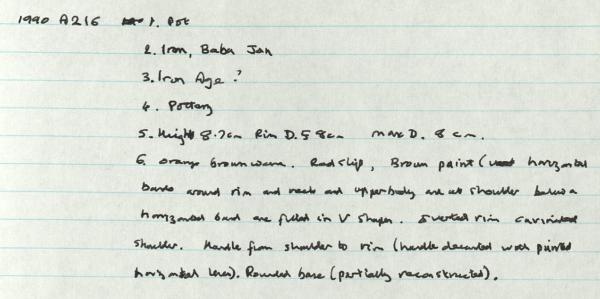 1990 A216 1. Pot
2. Iron, Baba Jan
3. Iron Age?
4. Pottery
5. Height 8.7cm Rim D. 5.8cm max D. 8 cm.
6. Orange brown ware. Red slip, Brown paint ( horizontal
bands around rim and neck and upperbody and at shoulder below a
horizontal band are filled in V shapes. Everted rim carinated
shoulder. Handle from shoulder to rim (handle decorated with painted
horizontal lines). Rounded base (partially reconstructed).